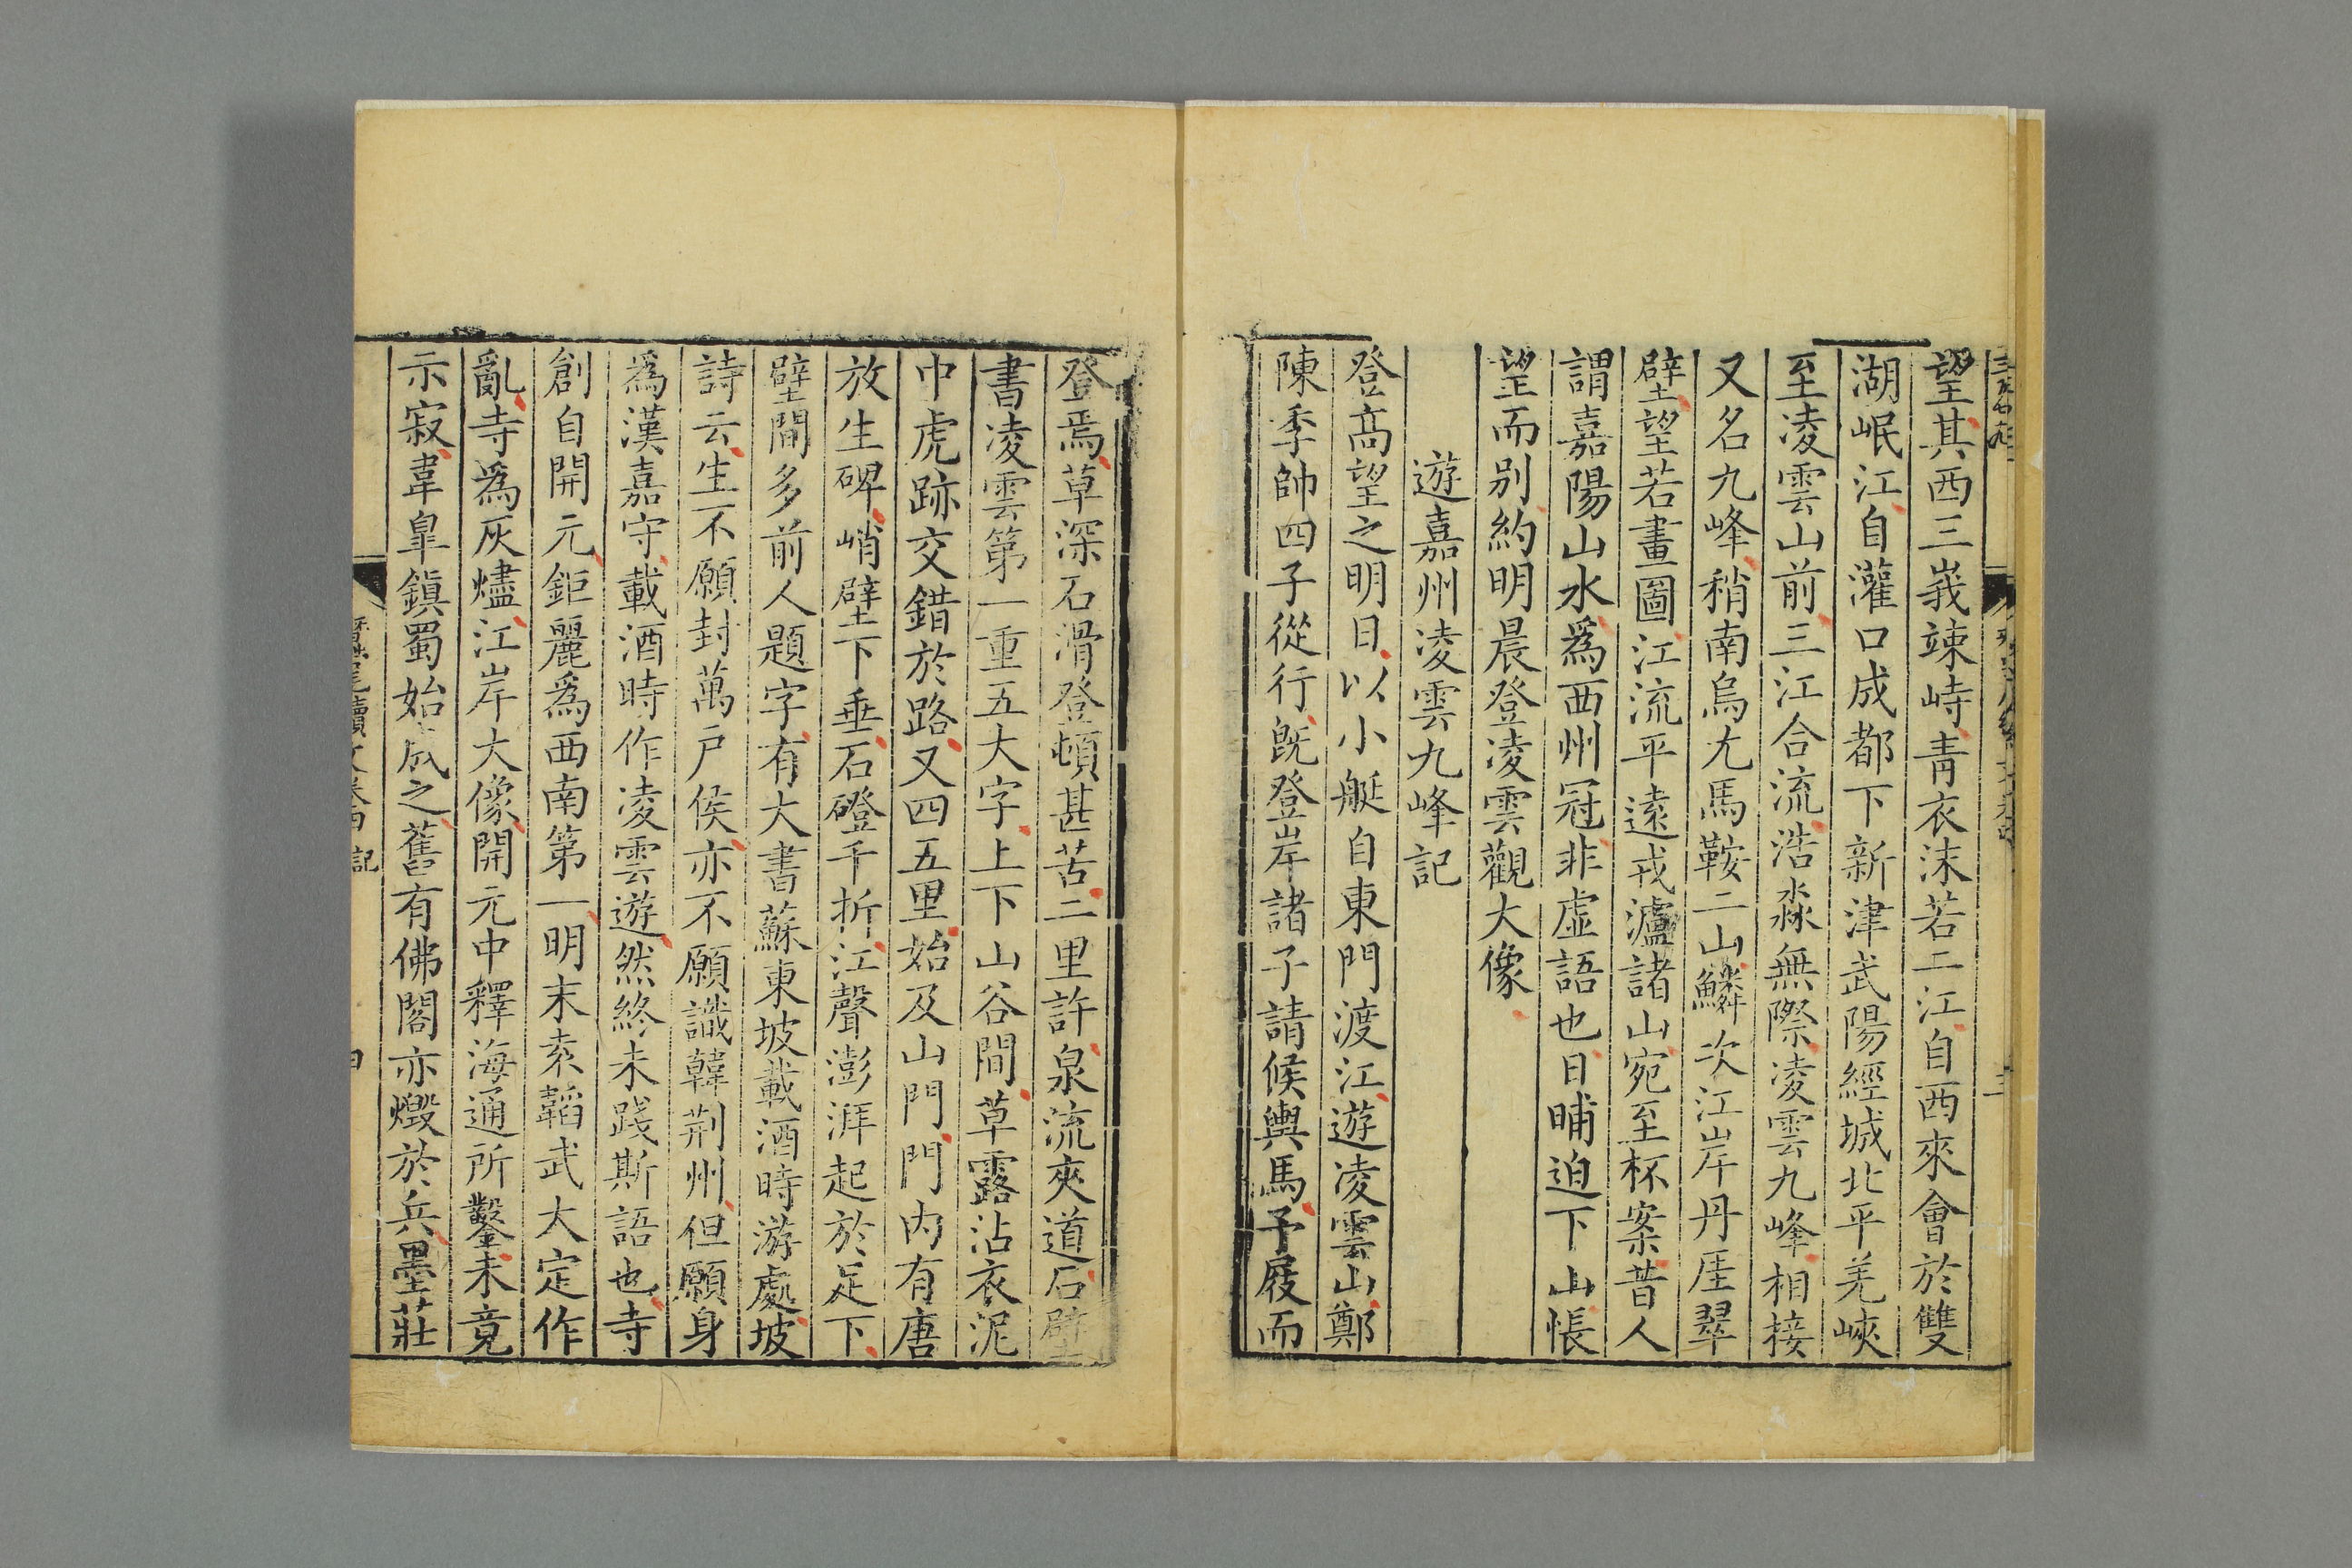 望其西三峩竦峙青衣沫若二江自西來會於雙
湖岷江自灌口成都下新津武陽經城北平羌峽
至凌雲山前三江合流浩淼無際凌雲九峰相接
又名九峰稍南烏尤馬鞍二山鱗次江岸丹厓翠
壁望若畫圖江流平遠戎瀘諸山宛至杯案昔人
謂嘉陽山水爲西州冠非虛語也日晡迫下山悵
望而别約明晨登凌雲觀大像
遊嘉州凌雲九峰記
登高望之明日以小艇自東門渡江遊凌雲山鄭
陳季帥四子從行旣登岸諸子請候輿馬予屐而
登焉草深石滑登頓甚苦二里許泉流夾道石壁
書凌雲第一重五大字上下山谷間草露沾衣泥
中虎跡交錯於路又四五里始及山門門内有唐
放生碑峭壁下垂石磴千折江聲澎湃起於足下
壁間多前人題字有大書蘇東坡載酒時游處坡
詩云生不願封萬戸侯亦不願識韓荆州但願身
爲漢嘉守載酒時作凌雲遊然終未踐斯語也寺
創自開元鉅麗爲西南第一明末袁韜武大定作
亂寺爲灰燼江岸大像開元中釋海通所鑿未竟
示寂韋臯鎭蜀始成之舊有佛閣亦燬於兵墨莊
蠶尾續文卷四 記